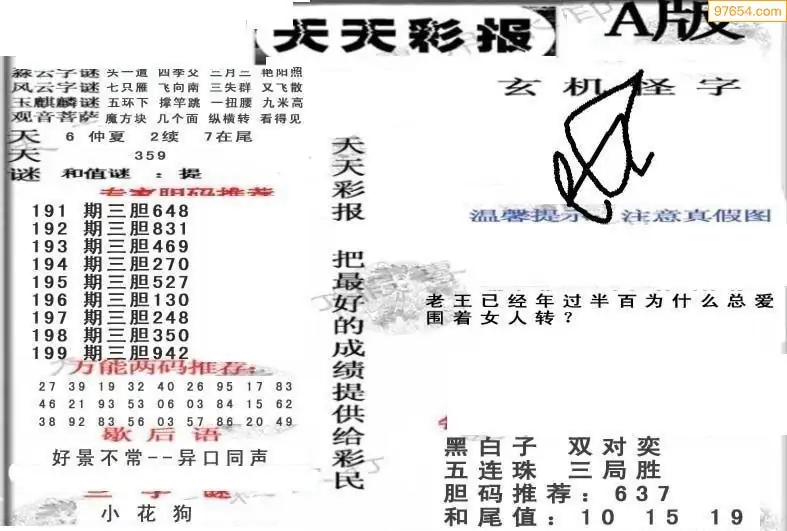 97654.com
天天彩报
A版
森云字谜 头一道 四季交 三月三 艳阳照
风云字谜 七只雁 飞向南 三失群 又飞散
玉麒麟谜 五环下 撑竿跳 一扭腰 九米高
观音菩萨 魔方块 几个面 纵横转 看得见
天 6 仲夏 2续 7在尾
天 359
谜 和值谜 : 提
专家胆码推荐
191 期三胆648
192 期三胆831
193 期三胆469
194 期三胆270
195 期三胆527
196 期三胆130
197 期三胆248
198 期三胆350
199 期三胆942
万能两码推荐:
27 39 19 32 40 26 95 17 83
46 21 93 53 06 03 84 15 62
38 92 83 56 03 57 86 20 49
歇后语
好景不常--异口同声
三字谜
小花狗
天天彩报 把最好的成绩提供给彩民
玄机怪字
温馨提示 注意真假图
老王已经年过半百为什么总爱
围着女人转?
黑白子 双对奕
五连珠 三局胜
胆码推荐: 637
和尾值: 10 15 19